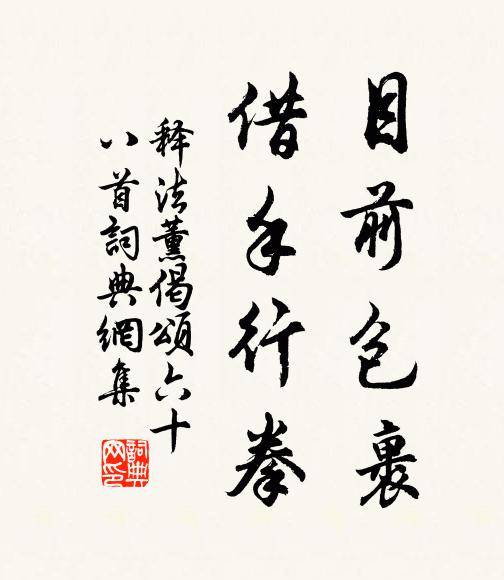 目前包裹
借手行拳
释法薰偈頌六十
八首詞典網集
詞典网印